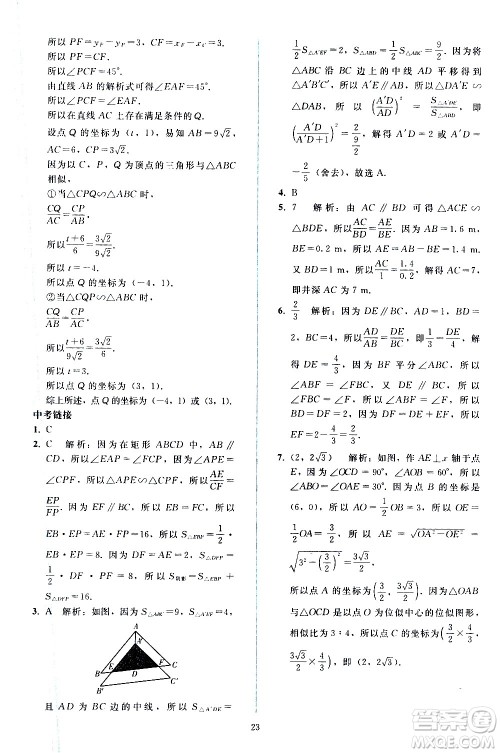 所以 PF=y_P-y_F=t.
所以∠PCF=45°.
由直线 AB 的解析式可得∠EAF=45°.
所以∠PCF=∠EAF=45°.
故在直线 AC 上存在满足条件的点 Q.
设点 Q 的坐标为 (t, 1), 易知 AB=9√2,
AC=6, CP=3√2.
因为以 C, P, Q 为顶点的三角形与△ABC
相似,
①当△CPQ∽△ABC 时,
CQ/AC=CP/AB,
所以 (t+6)/6=3√2/9√2.
所以 t=-4.
所以点 Q 的坐标为 (-4, 1).
②当△CQP∽△ABC 时,
CQ/AB=CP/AC.
所以 (t+6)/9√2=3√2/6.
所以 t=3.
所以点 Q 的坐标为 (3, 1).
综上所述, 点 Q 为 (-4, 1) 或 (3, 1).
中考链接
1. C
2. C 解析: 因为在矩形 ABCD 中, AB∥
CD, 所以∠EAP=∠FCP, ∠APE=
∠CPF. 所以△AEP∽△CFP. 所以 AE/CF=
EP/PF. 因为 EB=CF, 所以 AE/EB=EP/PF. 所以
EB·EP=AE·PF=2×8=16. 所以 1/2
EB·EP=8. 因为 AE∥PF, 所以 S△DPF=
1/2·DF·PF=8. 所以 S阴影=S△EBP+
S△DPF=16.
3. A 解析: 如图, 因为 S△ABC=9, S△A'EF=4,
A
A'
B
E
D
F
C
B'
C'
且 AD 为 BC 边的中线, 所以 S△A'DE=
1/2 S△A'EF=2, S△ABD=1/2 S△ABC=9/2. 因为将
△ABC 沿 BC 边上的中线 AD 平移得到
△A'B'C', 所以 A'E∥AB. 所以△DA'E∽
△DAB, 所以 (A'D/AD)²=S△A'DE/S△ABD, 即
(A'D/(A'D+1))²=2/(9/2). 所以 A'D=2 或 A'D=
-2/5 (舍去), 故选 A.
4. B
5. 7 解析: 由 AC∥BD 可得△ACE∽
△BDE. 所以 AC/BD=AE/BE. 因为 AB=1.6 m,
BE=0.2 m, 所以 AC/BD=1.4/0.2. 所以 AC=7 m.
即井深 AC 为 7 m.
6. 2/3 解析: 因为 DE∥BC, AD=1,
BD=2, BC=4, 所以 AD/AB=DE/BC, 即 1/3=
DE/4, 解得 DE=4/3. 因为 BF 平分∠ABC, 所以
∠ABF=∠FBC. 因为 DE∥BC, 所以
∠FBC=∠F=∠ABF. 所以 DF=BD=
2. 因为 DF=DE+EF, 所以 EF=2-4/3=2/3.
7. (2, 2√3) 解析: 如图, 作 AE⊥x 轴于点
E. 因为∠OCD=90°, ∠AOB=60°, 所以
∠ABO=∠OAE=30°. 因为点 B 的坐标是
(6, 0), 所以 AO=1/2 OB=3. 所以 OE=
1/2 OA=3/2. 所以 AE=√(OA²-OE²)=
√(3²-(3/2)²)=3√3/2.
所以点 A 的坐标为 (3/2, 3√3/2). 因为△OAB
与△OCD 是以点 O 为位似中心的位似图形,
且相似比为 3:4, 所以点 C 的坐标为 (3/2×4/3,
3√3/2×4/3), 即 (2, 2√3).
23